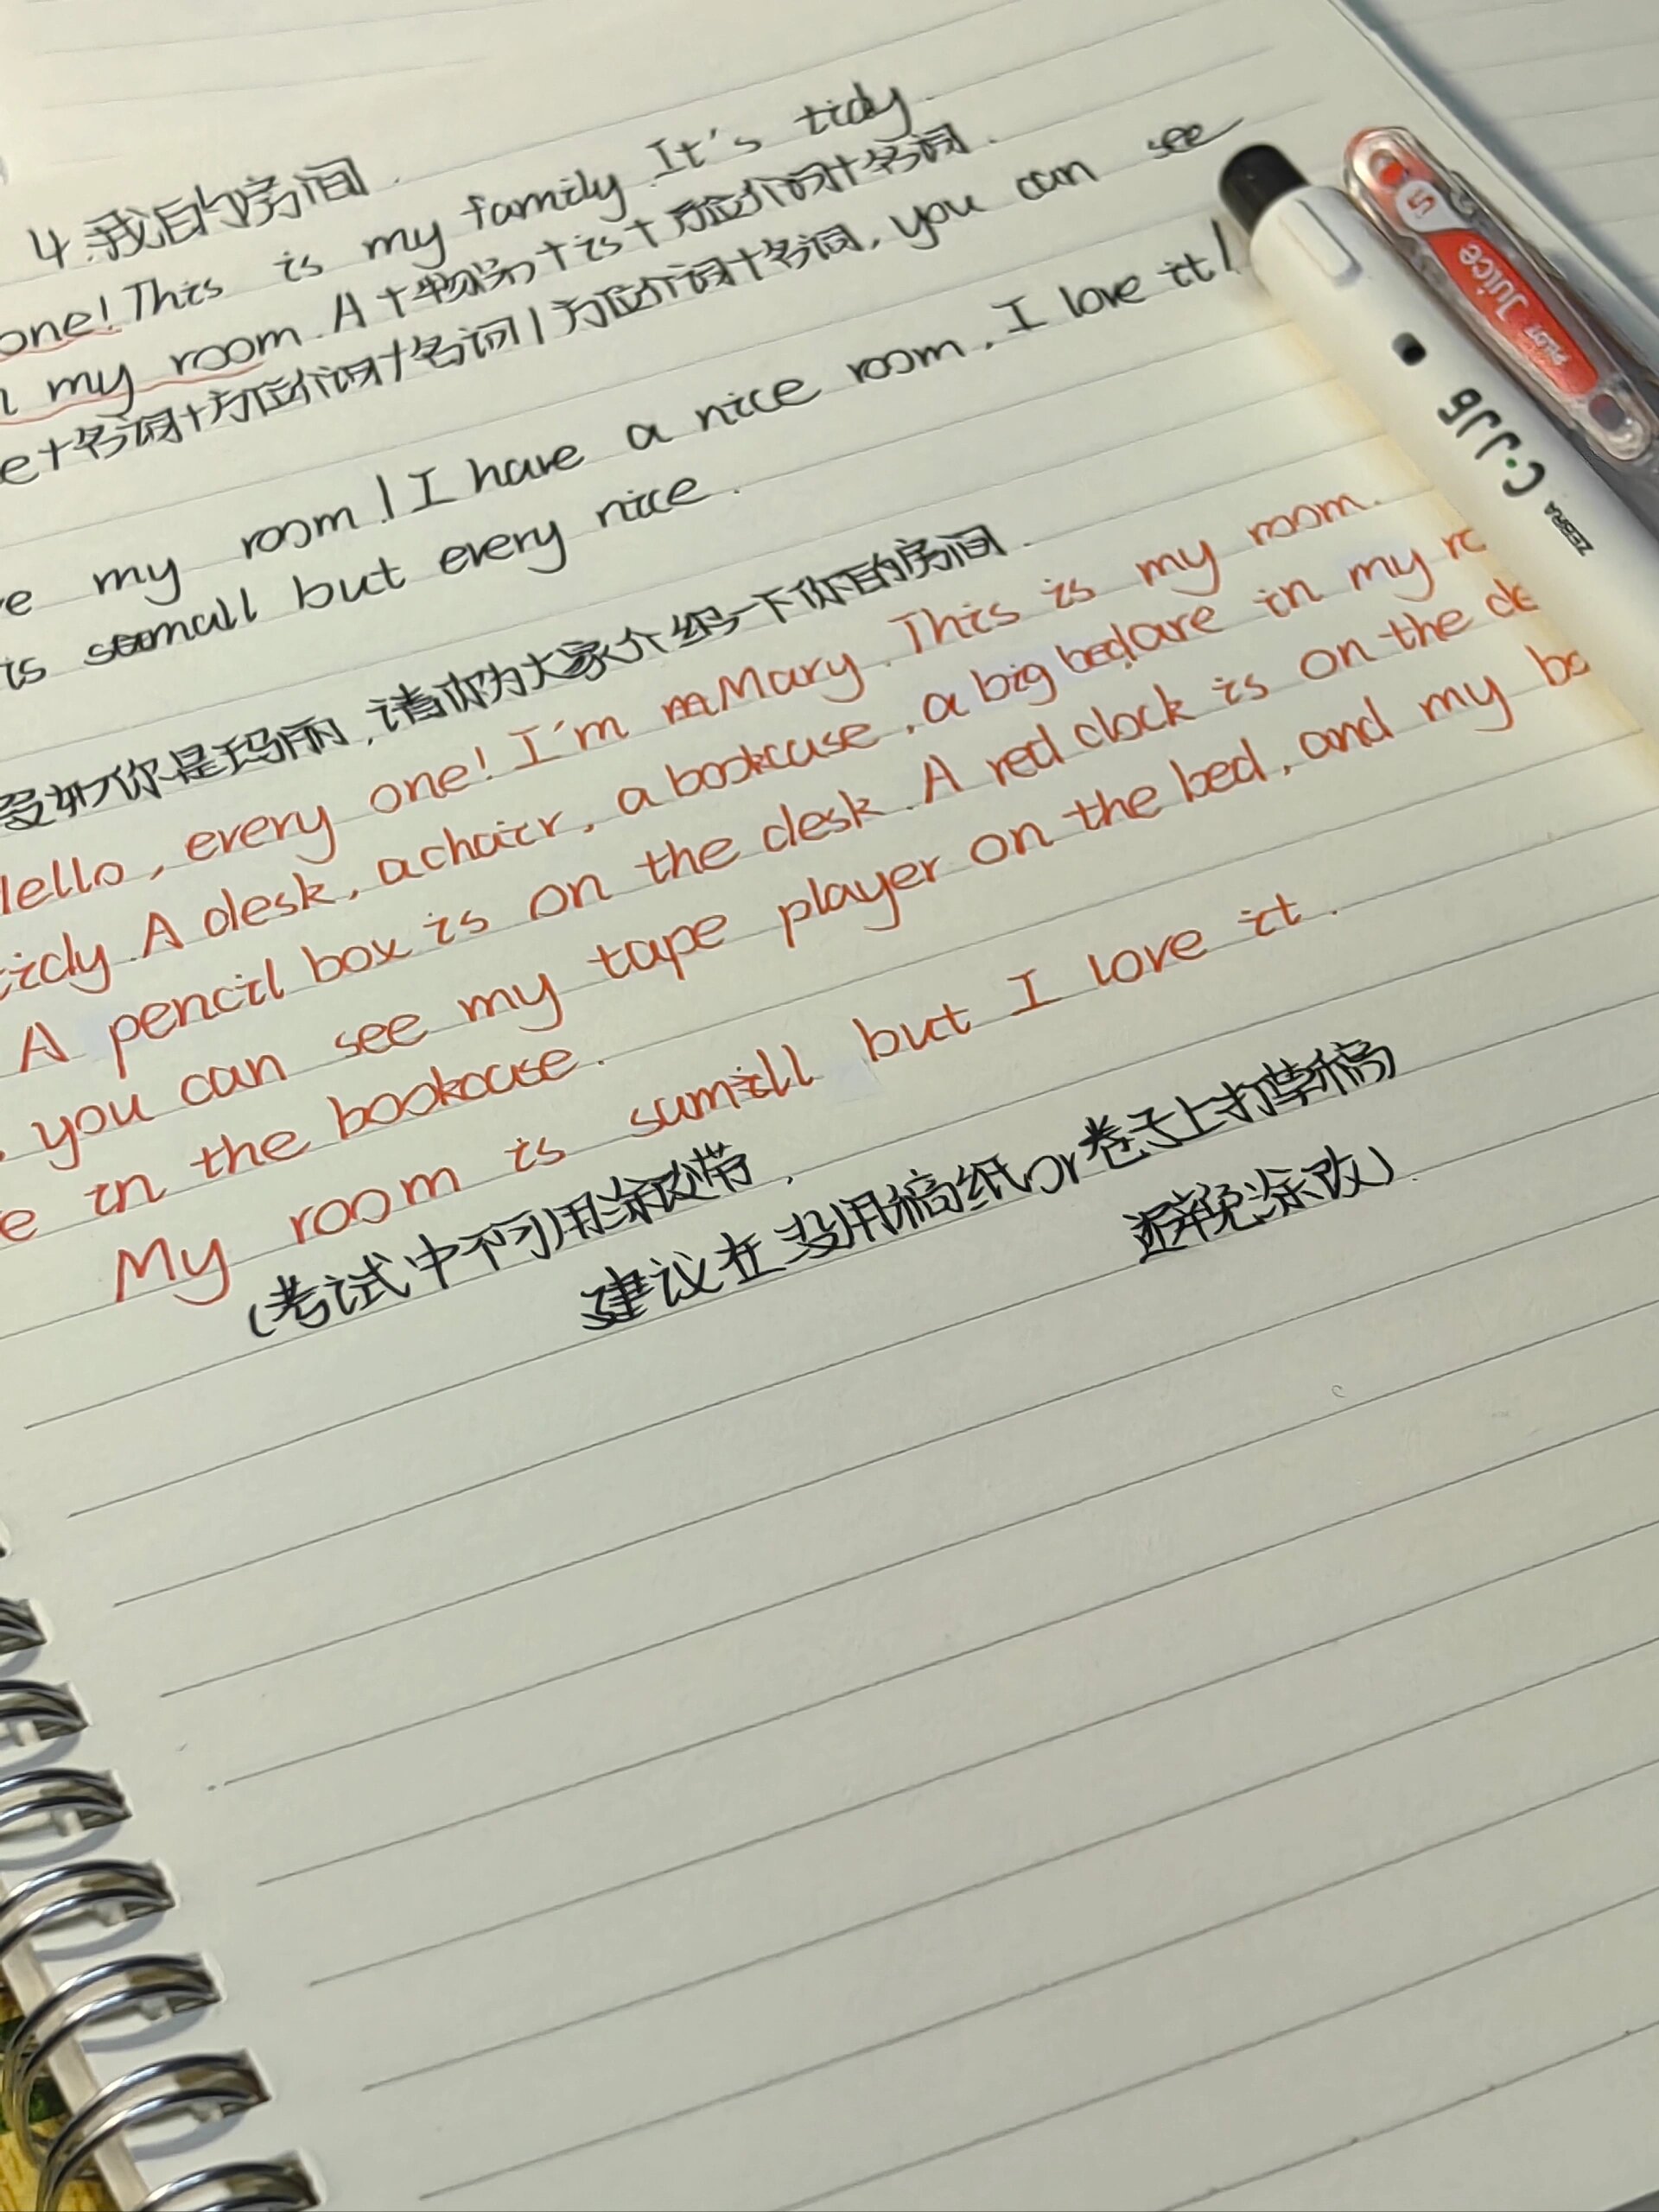 4.我的房间.
one! This is my family. It's tidy.
my room. A + 物品 + is + 方位介词 + 名词.
e + 名词 + 方位介词 + 名词 / 方位介词 + 名词, you can see
e my room! I have a nice room. I love it!
is samall but every nice.
你是玛丽,请你为大家介绍一下你的房间.
Hello, every one! I'm mMary. This is my room.
tidy. A desk, a chair, a bookcase, a big bed, are in my ro
A pencil box is on the desk. A red clock is on the de
you can see my tape player on the bed, and my bo
e in the bookcase.
My room is samill but I love it.
(考试中不可用涂改带,
建议在没用稿纸or卷子上打草稿
避免涂改).
Juice
PILOT
5
C.JJ5
ZEBRA